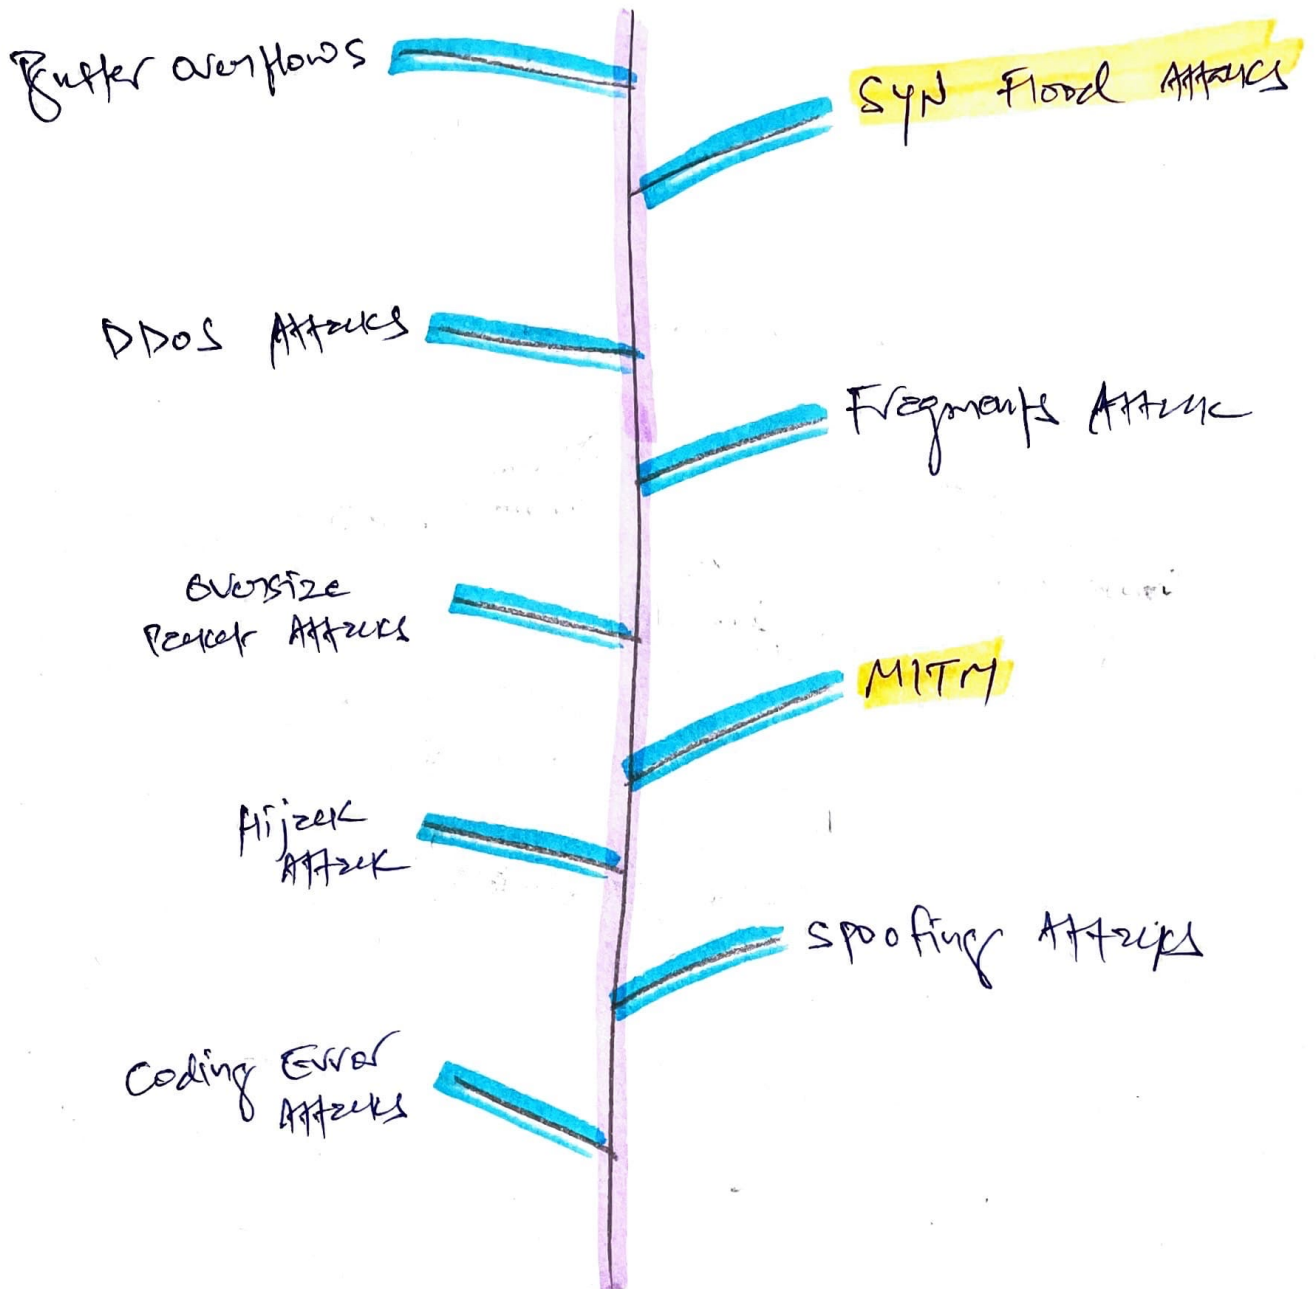 Buffer overflows
SYN Flood Attacks
DDOS Attacks
Fragments Attack
Oversize
Packet Attacks
MITM
Hijack
Attack
Spoofing Attacks
Coding Error
Attacks